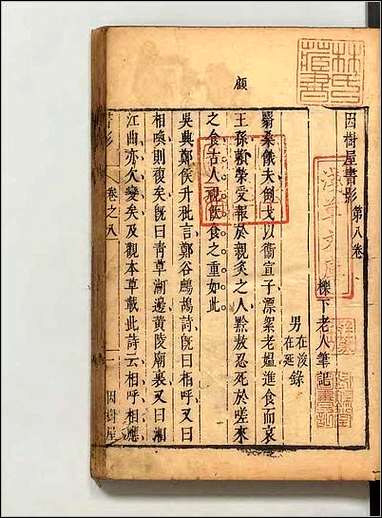 因樹屋書影第八卷
櫟下老人筆記
男在浚錄
在延
翳桑餓夫倒戈以衞宣子漂絮老媼進食而哀
王孫顧榮受報於親炙之人黔敖忍死於嗟來
之食古人視飲食之重如此
吳興鄭侯升秕言鄭谷鷓鴣詩旣曰相呼又曰
相喚則複矣旣曰青草湖邊黃陵廟裏又曰湘
江曲亦欠變矣及觀本草載此詩云相呼相應
書影
卷之八
一
因樹屋
顧
林氏藏書